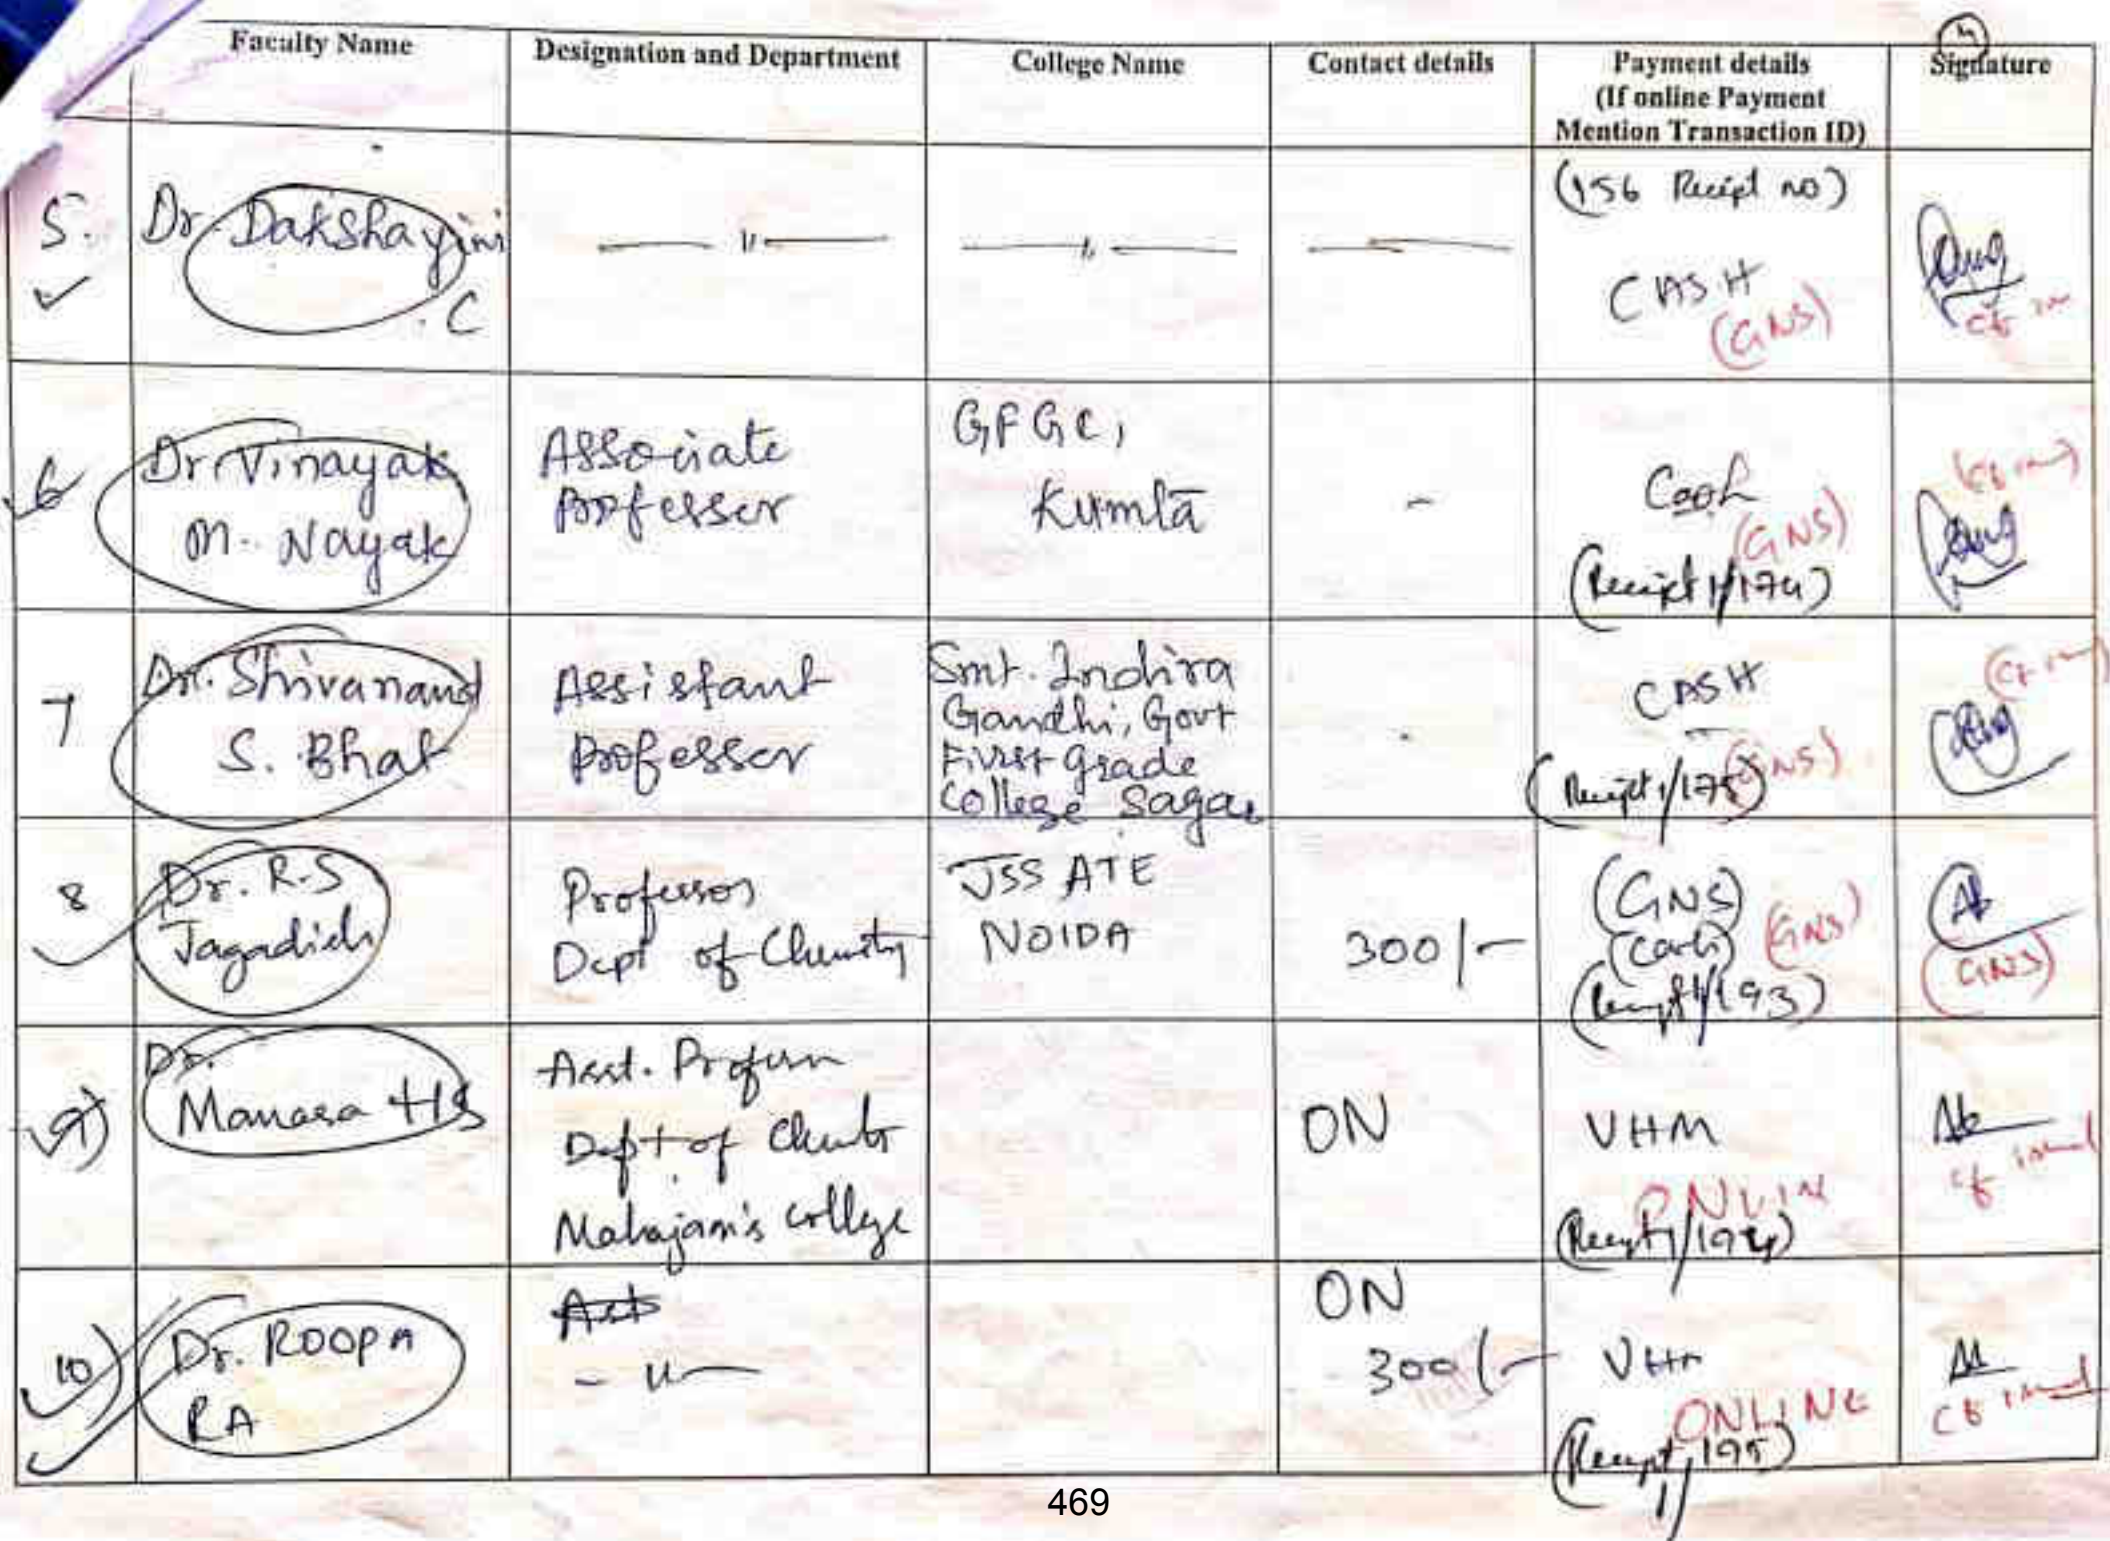 4
Faculty Name
Designation and Department
College Name
Contact details
Payment details
(If online Payment
Mention Transaction ID)
Signature
5.
Dr. Dakshayini
. C
— " —
— " —
(156 Recipt no)
CASH
(GNS)
6
Dr. Vinayak
M. Nayak
Associate
Professor
GFGC,
Kumta
-
Cash
(GNS)
(Receipt 1/174)
7
Dr. Shivanand
S. Bhat
Assistant
Professor
Smt. Indira
Gandhi, Govt
First grade
College Sagar
CASH
(GNS)
(Receipt 1/175)
8
Dr. R.S
Jagadish
Professor
Dept of Chemistry
JSS ATE
NOIDA
300/-
(GNS)
(GNS)
(Cash)
(Receipt 1/193)
(GNS)
9)
Dr.
Manasa HS
Asst. Professor
Dept of
Mahajan's college
ON
VHM
ONLIN
(Receipt 1/194)
10)
Dr. ROOPA
RA
- " -
ON
300/-
VHM
ONLINE
(Receipt 1/195)
469